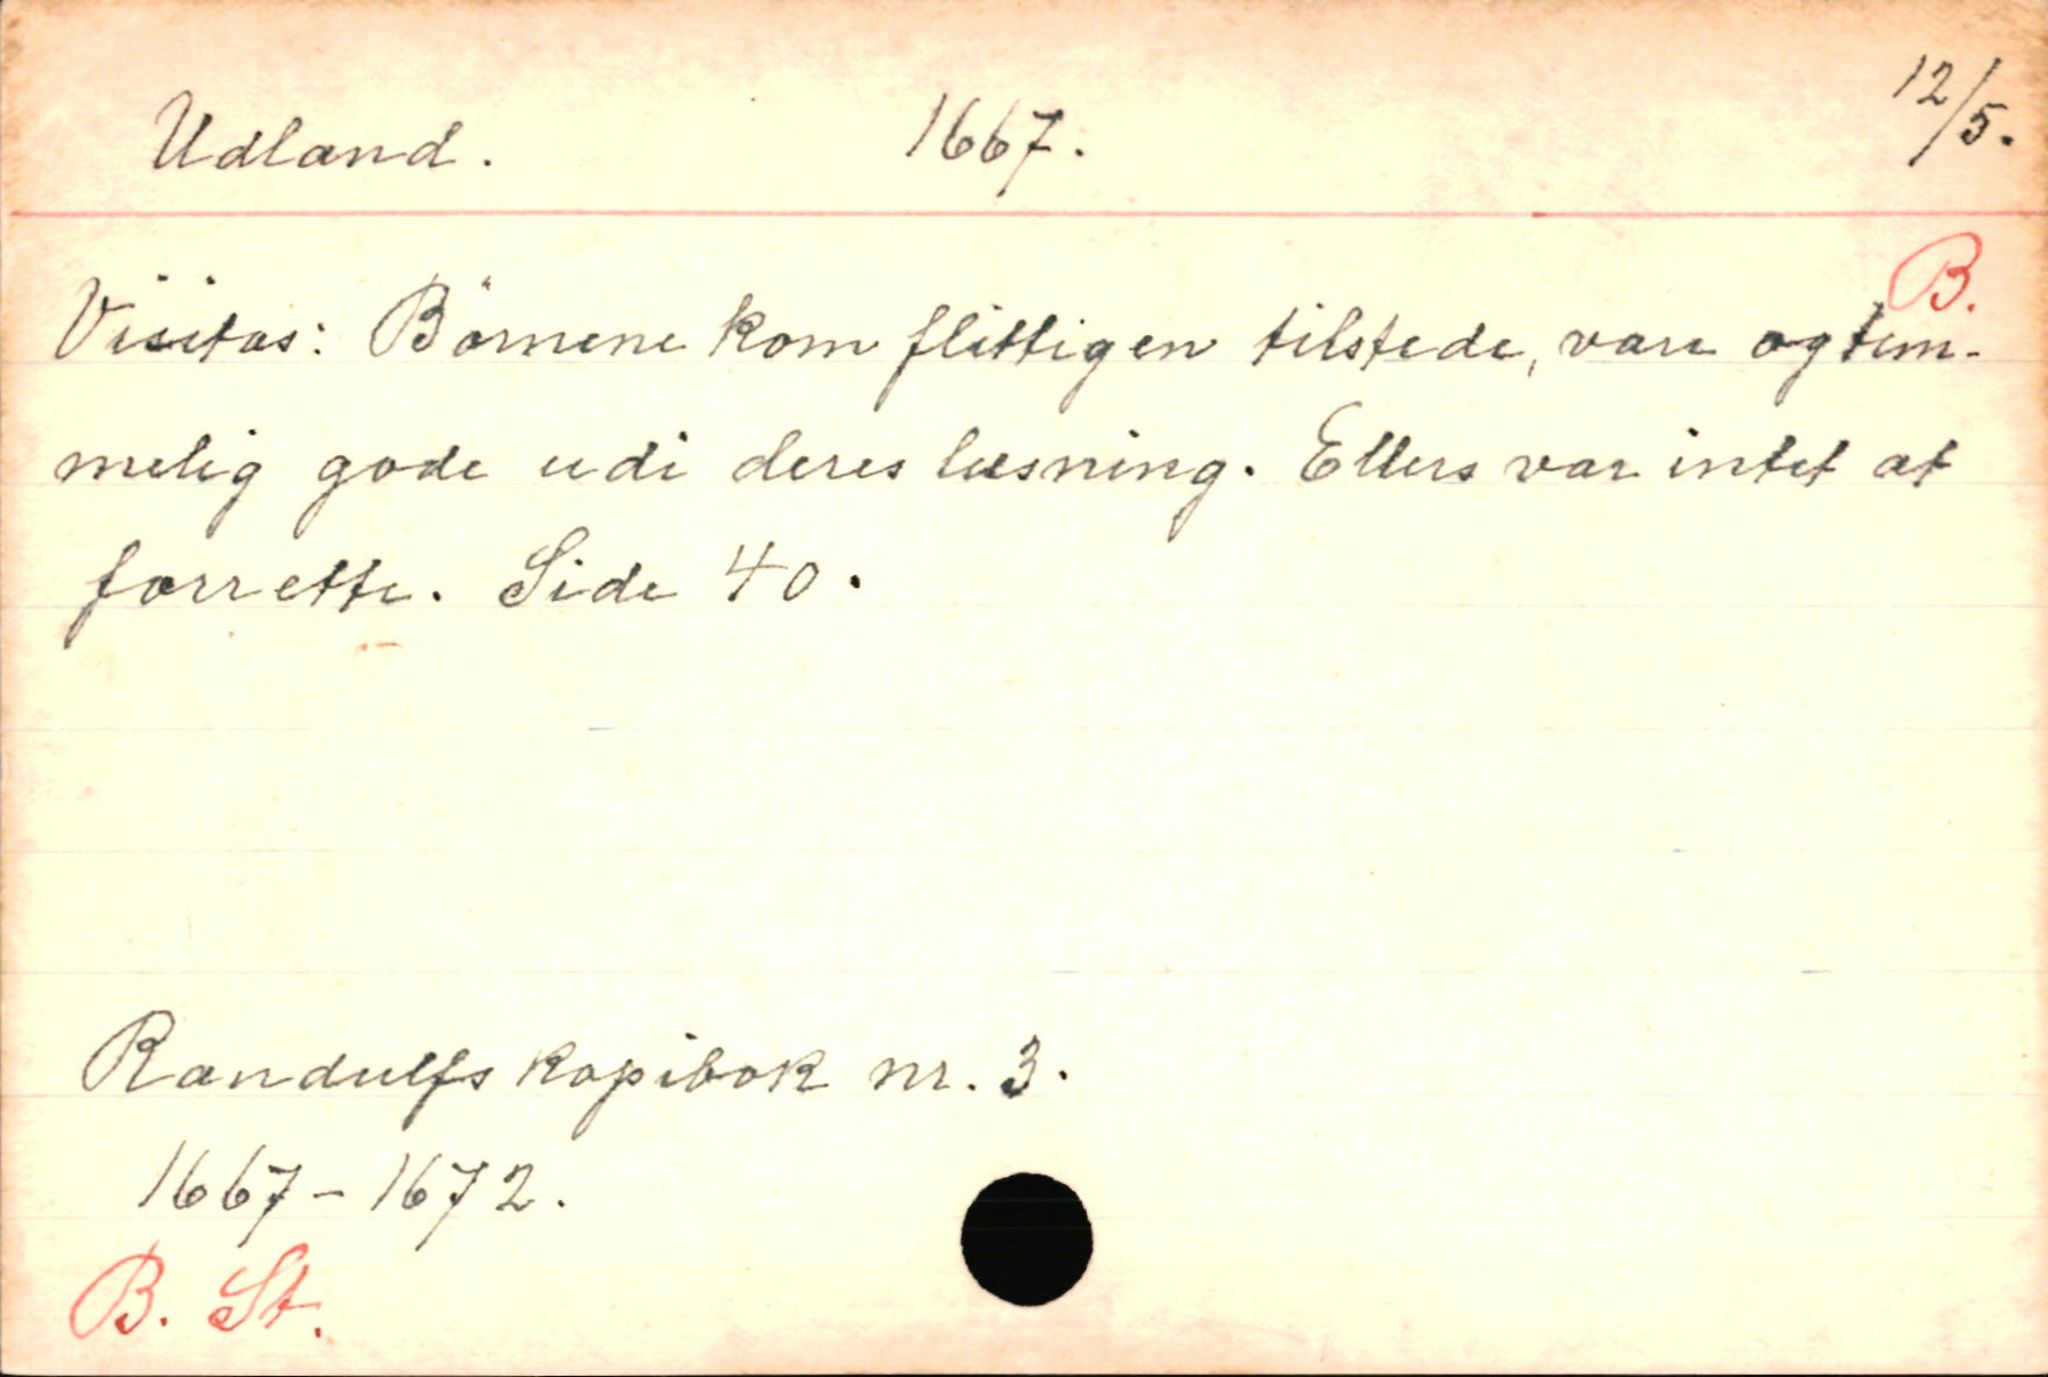 Udland. 1667. 12/5.
B.
Visitas: Börnene kom flittigen tilstede, vare og tem-
melig gode udi deres læsning. Ellers var intet at
forrette. Side 40.
Randulfs kopibok nr. 3.
1667-1672.
B. St.